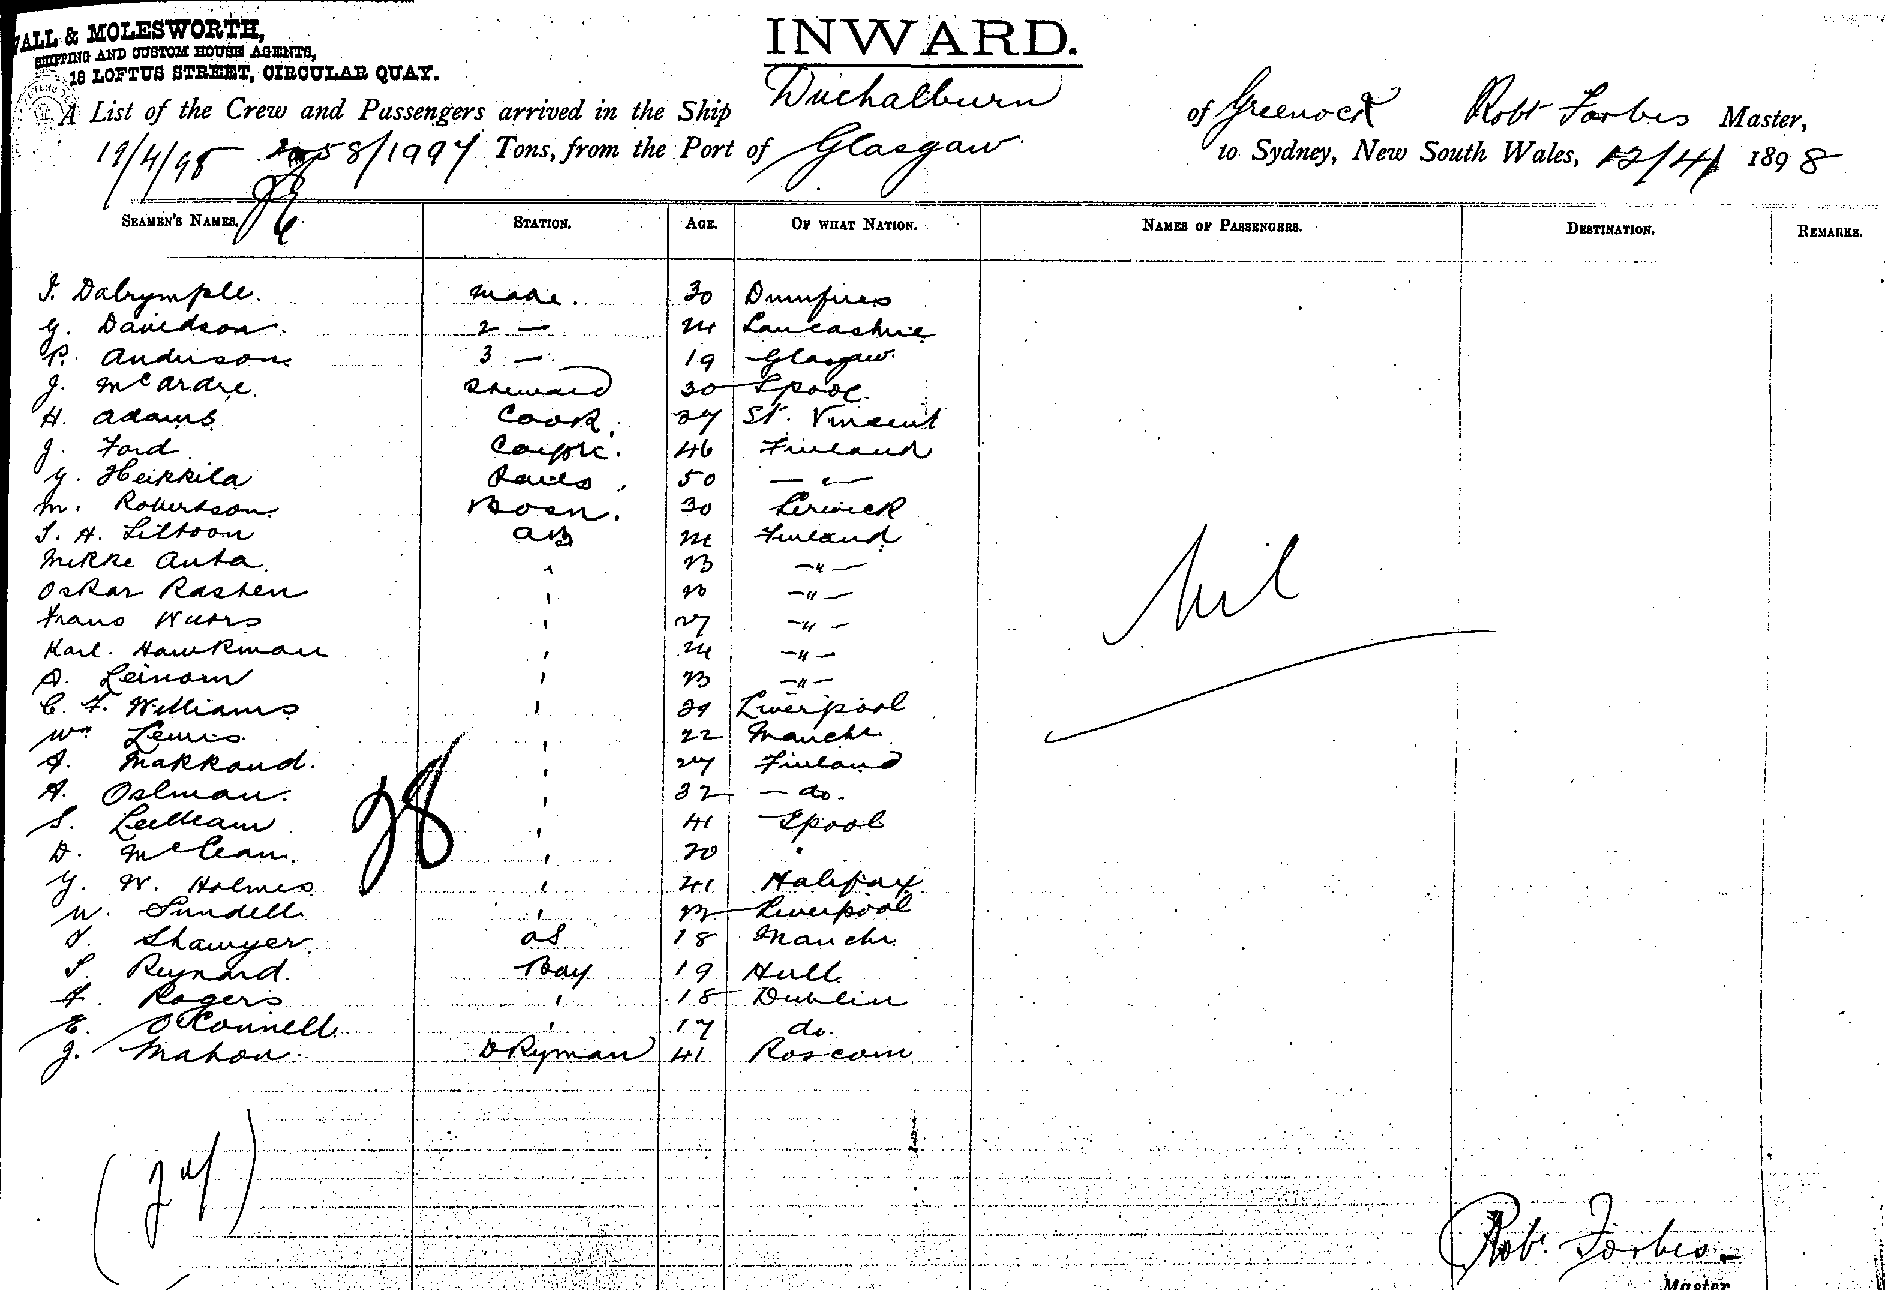 WALL & MOLESWORTH,
SHIPPING AND CUSTOM HOUSE AGENTS,
18 LOFTUS STREET, CIRCULAR QUAY.
INWARD.
A List of the Crew and Passengers arrived in the Ship Duchalburn of Greenock Robt Forbes Master,
19/4/98 58/1997 Tons, from the Port of Glasgow to Sydney, New South Wales, 12/4/ 1898
SEAMEN'S NAMES. STATION. AGE. OF WHAT NATION. NAMES OF PASSENGERS. DESTINATION. REMARKS.
J. Dalrymple. mate. 30 Dumfries
G. Davidson. 2 — 24 Lancashire
P. Anderson 3 — 19 Glasgow
J. McArdle. Steward 30 Lpool.
H. Adams Cook. 27 St. Vincent
J. Ford Carptr. 46 Finland
G. Heikkila Sails. 50 — " —
M. Robertson. Bosn. 30 Lerwick
AB 24 Finland
Nil
— " —
Oskar — " —
Frans 27 — " —
Karl. Hawkman 24 — " —
— " —
C. F. Williams Liverpool
Wm Lewis 22 Manchr
A. Makkand. 27 Finland
A. Oslman. 32 — do.
28
S. 41 Lpool
D. McLean.
G. W. Holmes 41 Halifax
W. Sundell Liverpool
Shawyer. OS 18 Manchr
S. Reynard. Boy 19 Hull
F. Rogers 18 Dublin
E. O'Connell 17 do.
J. Mahon. DKyman 41 Roscom
(27)
Robt. Forbes
Master